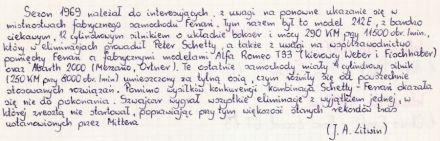 Sezon 1969 należał do interesujących, z uwagi na ponowne ukazanie się w
mistrzostwach fabrycznego samochodu Ferrari. Tym razem był to model 212E, z bardzo
ciekawym, 12 cylindrowym silnikiem o układzie bokser i mocy 290 KM przy 11500 obr./min.,
który w eliminacjach prowadził Peter Schetty, a także z uwagi na współzawodnictwo
pomiędzy Ferrari a fabrycznymi modelami Alfa Romeo T33 (kierowcy Weber i Fischhaber)
oraz Abarth 2000 (Merzario, Ortner). Te ostatnie samochody miały 4 cylindrowy silnik
(250 KM przy 8000 obr./min) umieszczony za tylną osią, czym różniły się od powszechnie
stosowanych rozwiązań. Pomimo wysiłków konkurencji kombinacja Schetty - Ferrari okazała
się nie do pokonania. Szwajcar wygrał wszystkie eliminacje z wyjątkiem jednej, w
której zresztą nie startował, poprawiając przy tym większość starych rekordów tras
ustanowionych przez Mittera.
(J. A. Litwin)